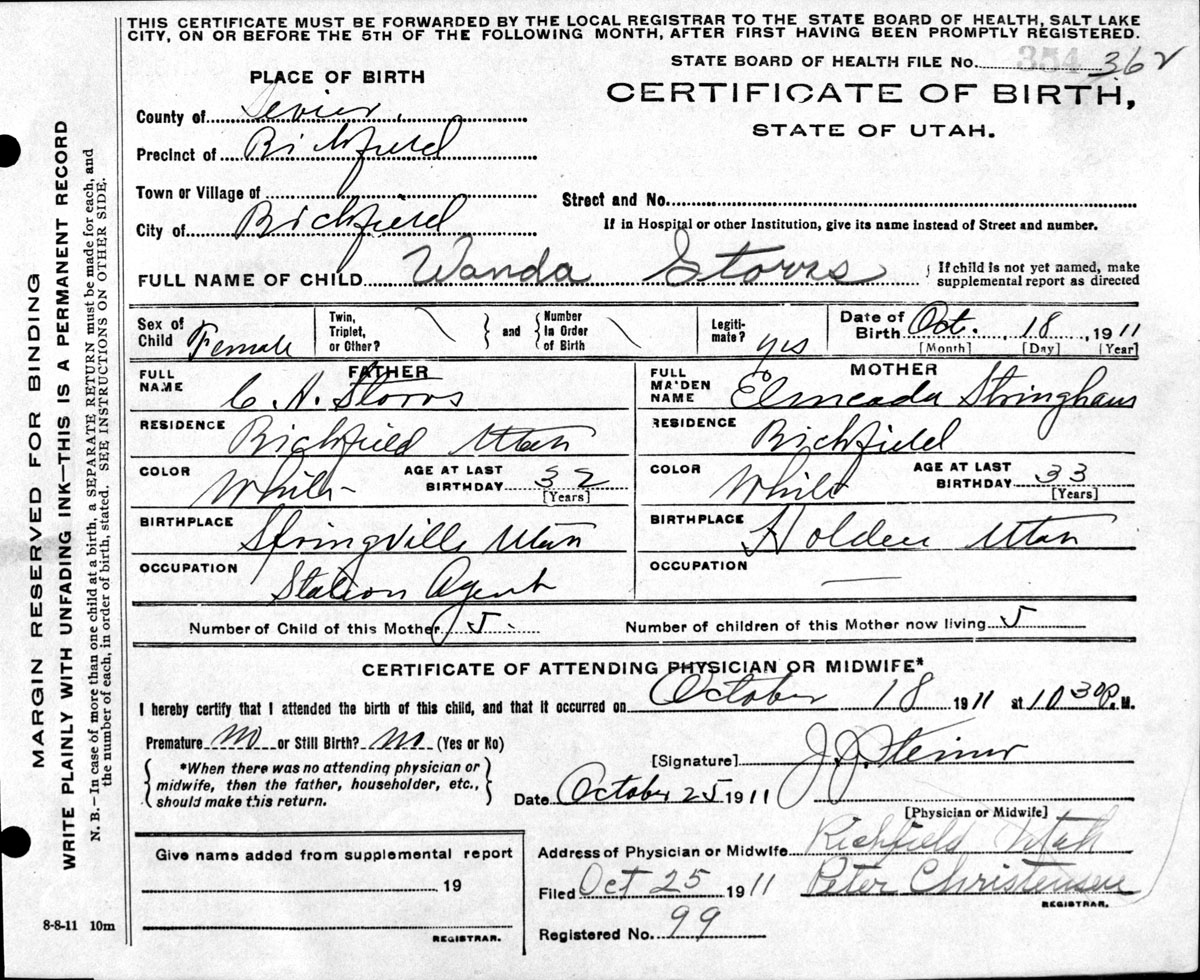 THIS CERTIFICATE MUST BE FORWARDED BY THE LOCAL REGISTRAR TO THE STATE BOARD OF HEALTH, SALT LAKE
CITY, ON OR BEFORE THE 5TH OF THE FOLLOWING MONTH, AFTER FIRST HAVING BEEN PROMPTLY REGISTERED.
STATE BOARD OF HEALTH FILE No. 354 362
PLACE OF BIRTH
CERTIFICATE OF BIRTH,
STATE OF UTAH.
County of Sevier
Precinct of Richfield
Town or Village of
Street and No.
City of Richfield
If in Hospital or other Institution, give its name instead of Street and number.
FULL NAME OF CHILD Wanda Storrs { If child is not yet named, make
supplemental report as directed
Sex of Child Female
Twin, Triplet, or Other?
and { Number In Order of Birth
Legiti-mate? yes
Date of Birth Oct. 18, 1911
[Month] [Day] [Year]
FATHER
MOTHER
FULL NAME C. N. Storrs
FULL MAIDEN NAME Elmeada Stringham
RESIDENCE Richfield Utah
RESIDENCE Richfield
COLOR White AGE AT LAST BIRTHDAY 32 [Years]
COLOR White AGE AT LAST BIRTHDAY 33 [Years]
BIRTHPLACE Springville Utah
BIRTHPLACE Holden Utah
OCCUPATION Station Agent
OCCUPATION —
Number of Child of this Mother 5
Number of children of this Mother now living 5
CERTIFICATE OF ATTENDING PHYSICIAN OR MIDWIFE*
I hereby certify that I attended the birth of this child, and that it occurred on October 18 1911 at 10 30 P. M.
Premature no or Still Birth? no (Yes or No)
*When there was no attending physician or
midwife, then the father, householder, etc.,
should make this return.
[Signature] J. J. Steiner
Date October 25 1911
[Physician or Midwife]
Give name added from supplemental report
19
REGISTRAR.
Address of Physician or Midwife Richfield Utah
Filed Oct 25 1911 Peter Christensen
REGISTRAR.
Registered No. 99
8-8-11 10m
MARGIN RESERVED FOR BINDING
WRITE PLAINLY WITH UNFADING INK—THIS IS A PERMANENT RECORD
N. B.—In case of more than one child at a birth, a SEPARATE RETURN must be made for each, and
the number of each, in order of birth, stated. SEE INSTRUCTIONS ON OTHER SIDE.